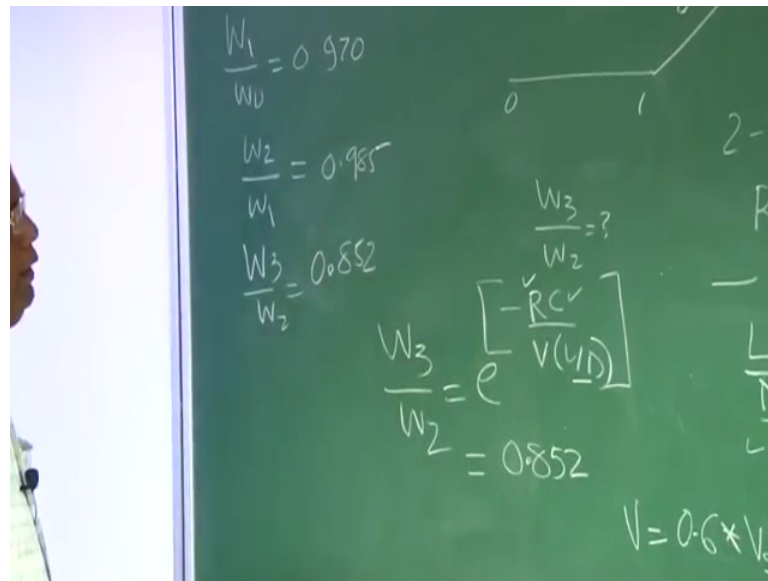 W1/W0 = 0.970
W2/W1 = 0.985
W3/W2 = 0.852
0 1
2-
W3/W2 = ?
W3/W2 = e^[-RC/V(L/D)]
= 0.852
L
V = 0.6*V